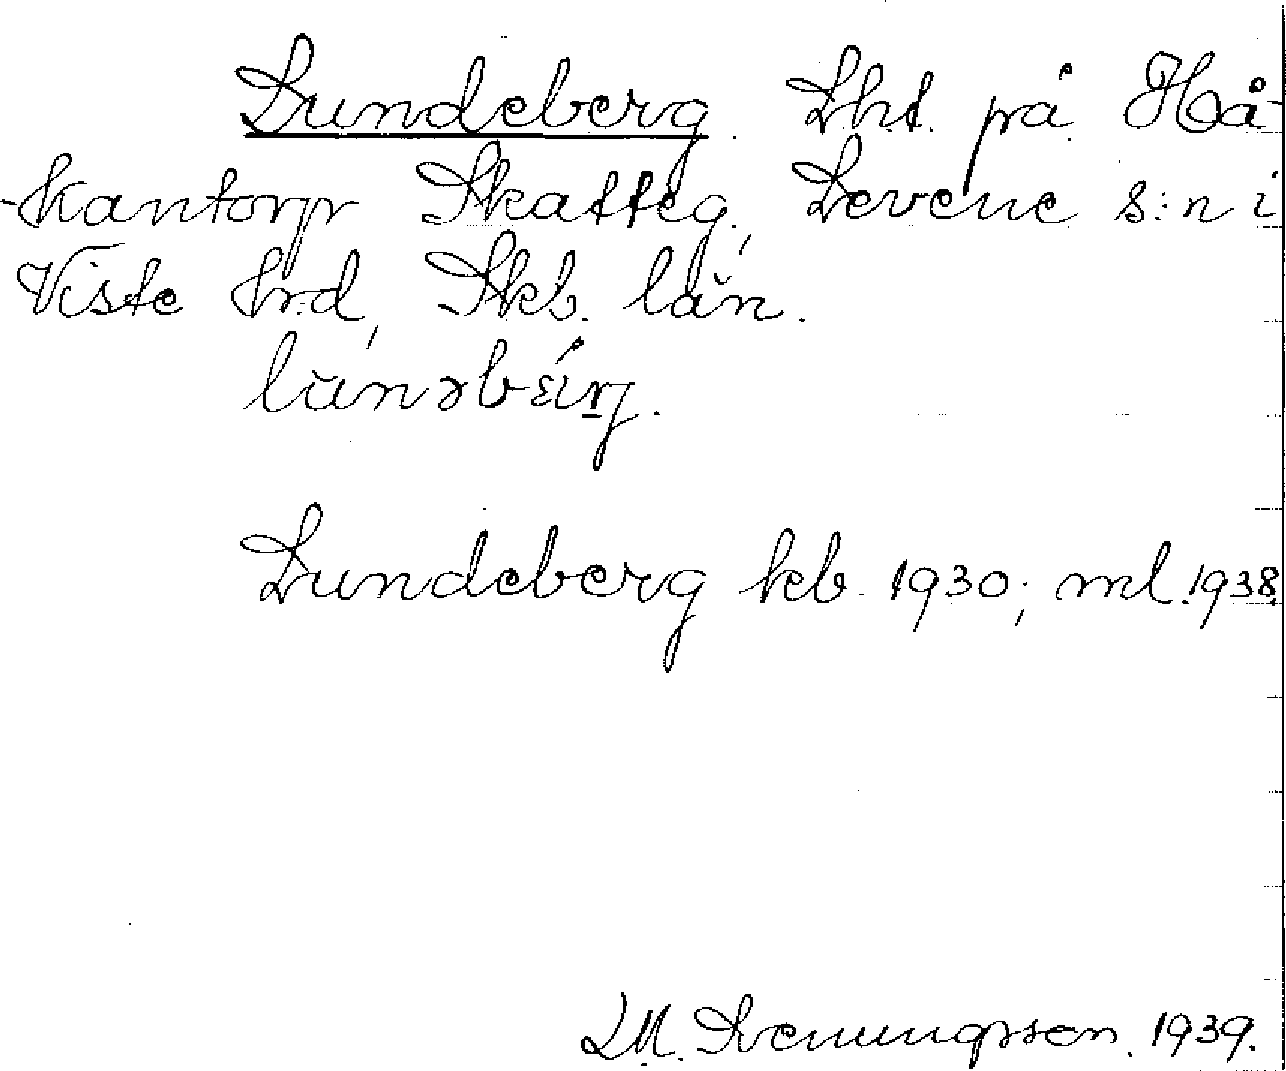 Lundeberg. Lht. på Hå-
-kantorp Skatteg., Levene s:n i
Viste hrd, Skb. län.
Lundeberg kb. 1930; ml. 1938.
LM. Svenungsson. 1939.